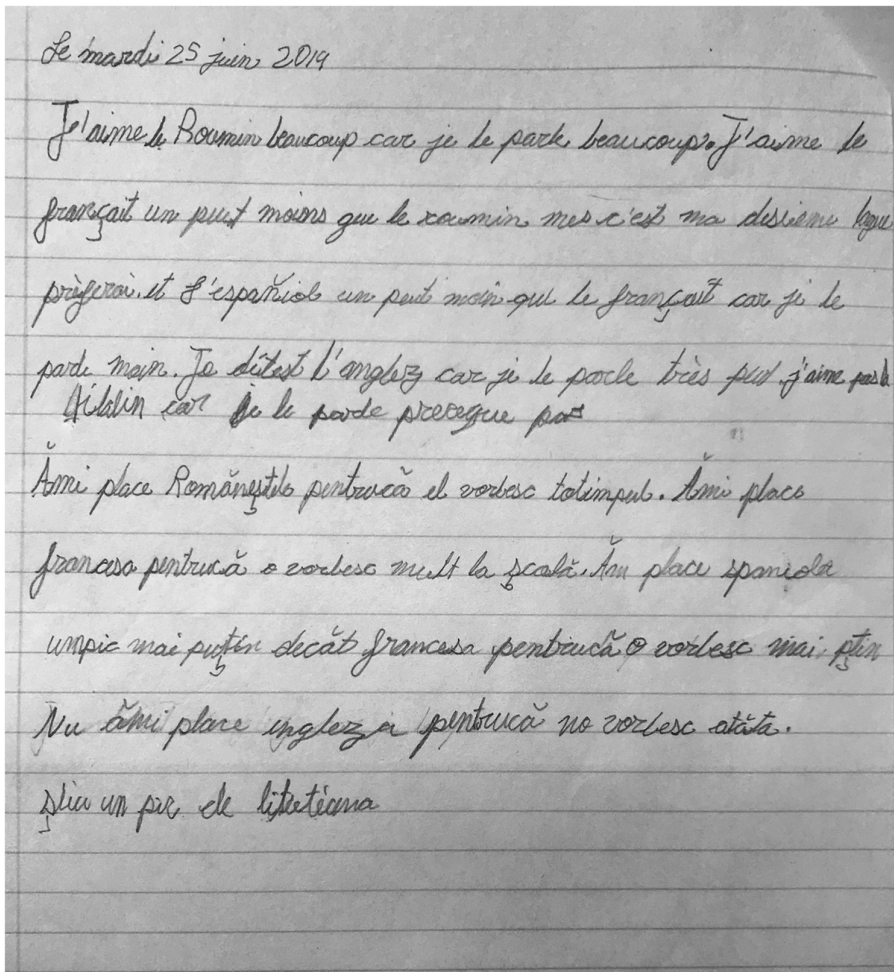 Le mardi 25 juin 2019
J'aime le Roumin beaucoup car je le parle beaucoup. J'aime le
françait un peut moins que le roumin mes c'est ma desieme lague
prèferai. et L'español un peut moin que le françait car je le
parle moin. Je dètest l'anglez car je le parle très peu. j'aime pas l
Litalin car je le parle precque pas
Ămi place Românește pentrucă el vorbesc totimpul. Ămi place
francesa pentrucă o vorbesc mult la școală. Ămi place spaniola
umpic mai puțin decăt francesa pentrucă o vorbesc mai pțin
Nu ămi place ingleza pentrucă no vorbesc atăta.
știu un pic de